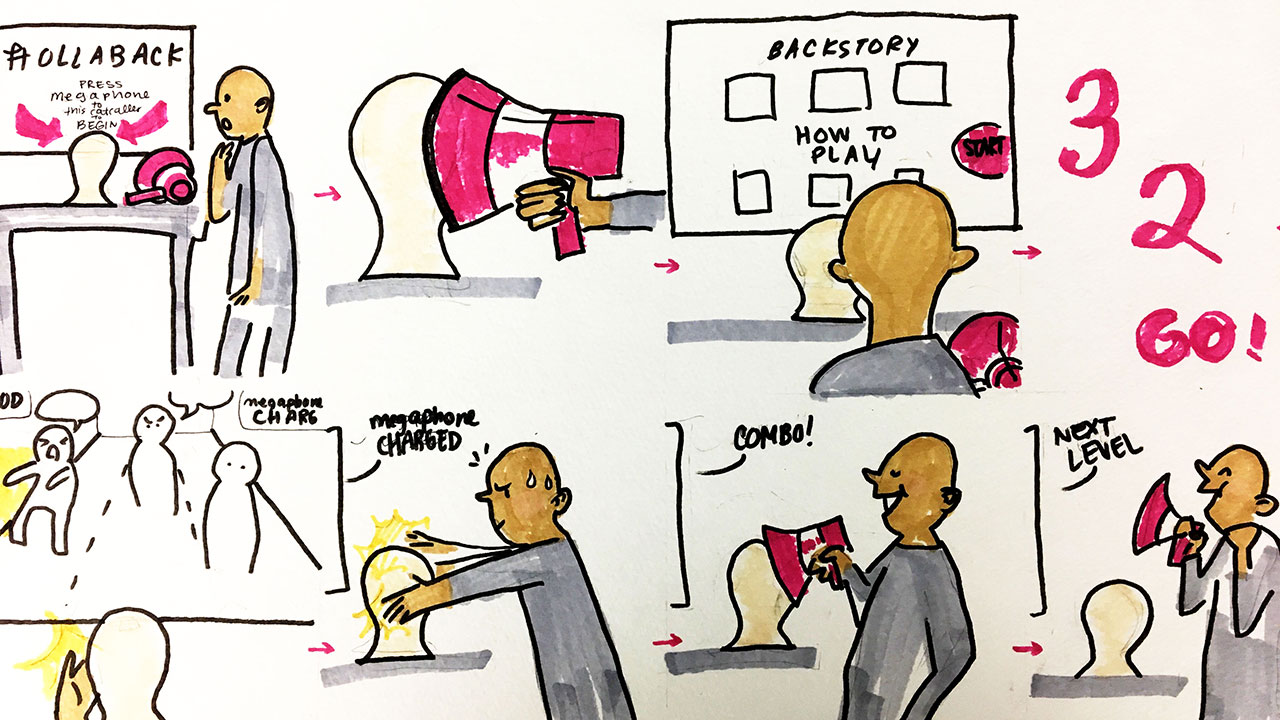 #OLLABACK
PRESS
megaphone
to
this catcaller
to
BEGIN
BACKSTORY
HOW TO
PLAY
START
3
2
GO!
OD
megaphone
CHARG
megaphone
CHARGED
COMBO!
NEXT
LEVEL